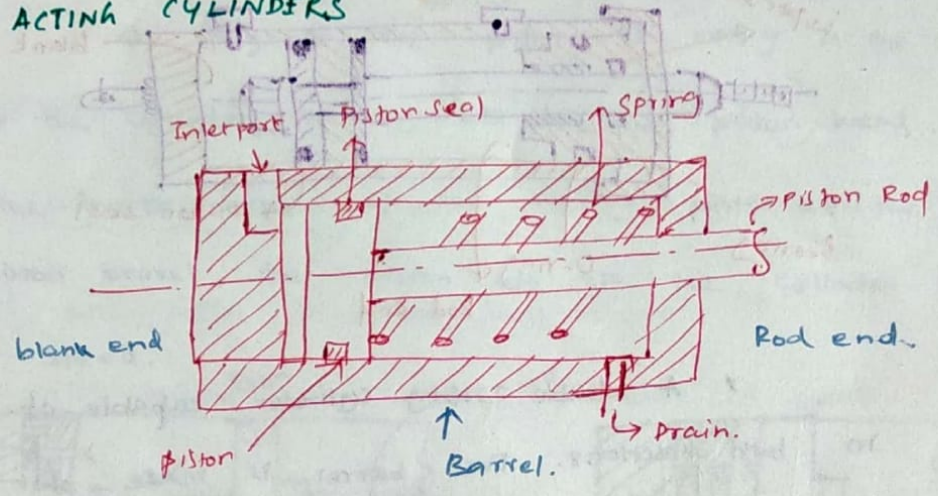 ACTING CYLINDERS
Inlet port
Piston seal
Spring
Piston Rod
blank end
Rod end.
piston
Barrel.
Drain.